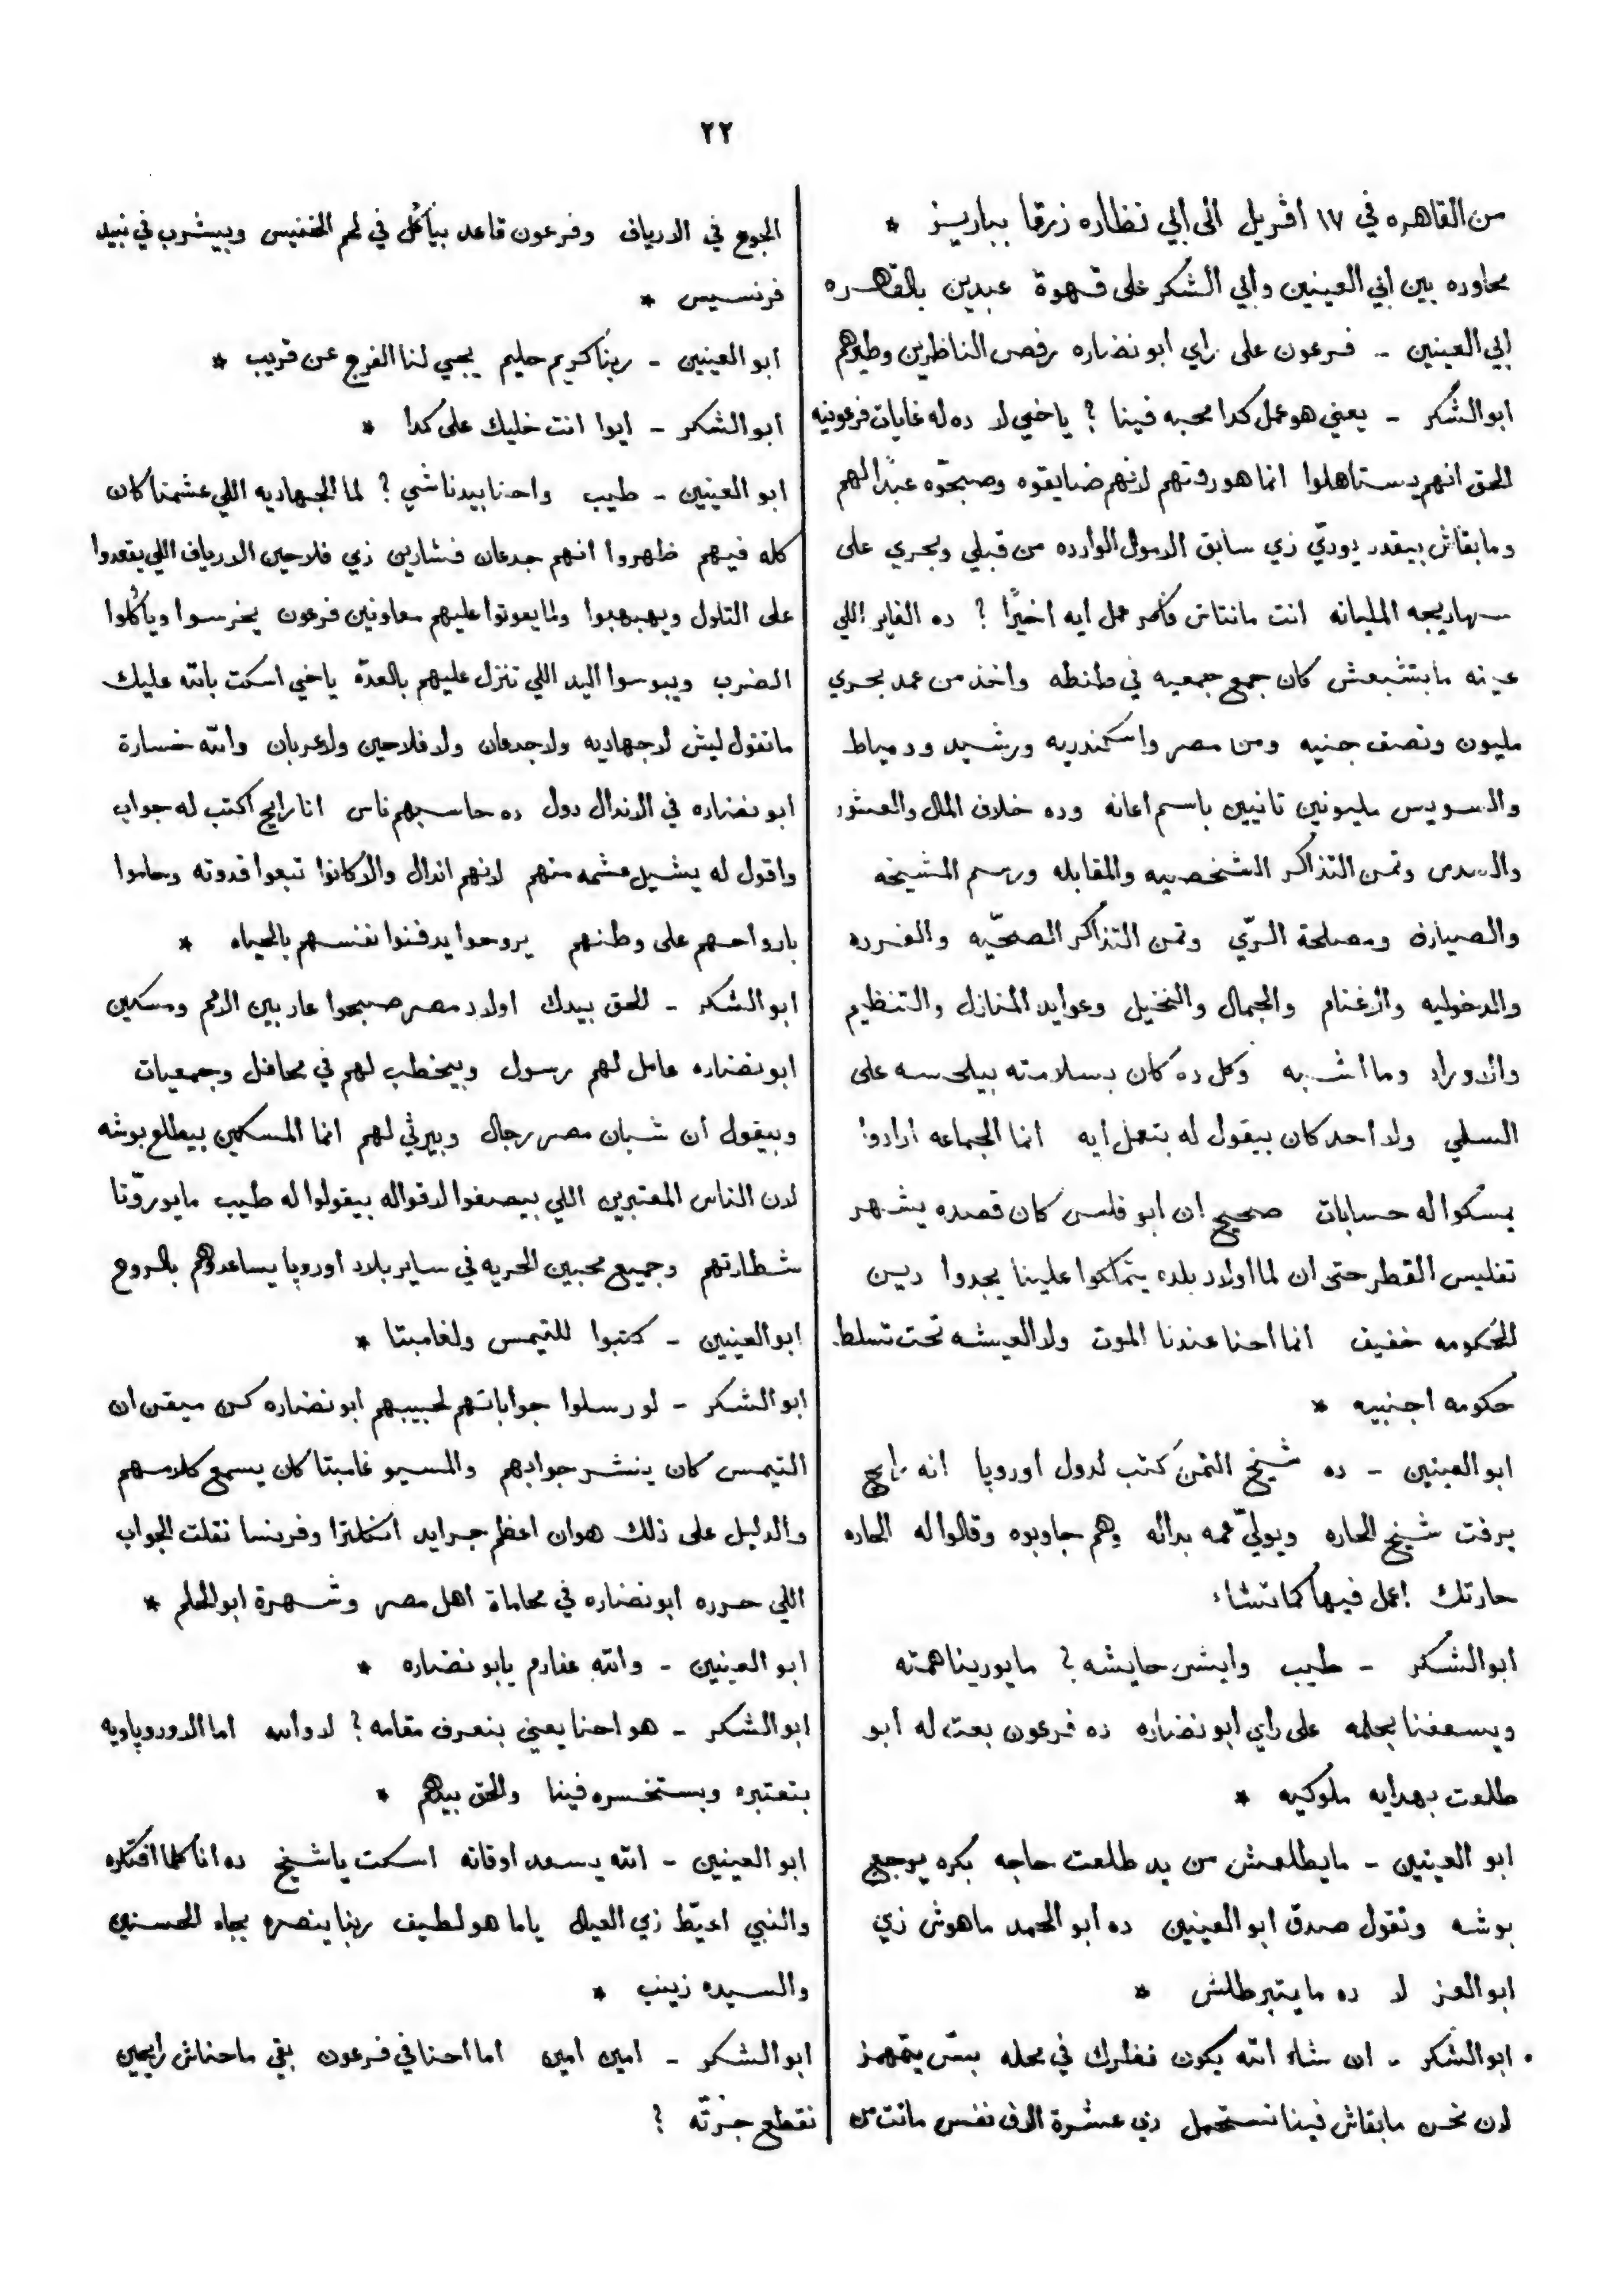 ٢٢
من القاهره في ١٧ افريل الى ابي نظاره زرقا بباريز *
محاوره بين ابي العينين وابي الشكر على قهوة عبدين بالقاهره
ابي العينين - فرعون على راي ابو نضاره رفص الناظرين وطيرهم
ابو الشكر - يعني هو عمل كدا محبه فينا ? ياخي لا ده له غايات فرعونيه
الحق انهم يستاهلوا انما هو رفتهم لانهم ضايقوه وصبحوه عبدًا لهم
وما بقاش بيقدر يودّي زي سابق الاموال الوارده من قبلي وبحري على
سهاريجه المليانه انت مانتاش فاكر عمل ايه اخيرًا ? ده الفاير اللي
عينه ما بتشبعش كان جمع جمعيه في طنطه واخذ من عمد بحري
مليون ونصف جنيه ومن مصر واسكندريه ورشيد ودمياط
والسويس مليونين تانيين باسم اعانه وده خلاف المال والعشور
والسدس وتمن التذاكر الشخصيه والمقابله ورسم المشيخه
والصيارف ومصلحة الريّ وتمن التذاكر الصحّيه والفرده
والدخوليه والاغنام والجمال والنخيل وعوايد المنازل والتنظيم
والادوراد وما اشبه وكل ده كان بسلامته بيلحسه على
السلي ولا احد كان بيقول له بتعمل ايه انما الجماعه ارادوا
يمسكوا له حسابات صحيح ان ابو فلس كان قصده يشهر
تفليس القطر حتى ان لما اولاد بلده يتمالكوا علينا يجدوا دين
الحكومه خفيف انما احنا عندنا الموت ولا العيشه تحت تسلط
حكومه اجنبيه *
ابو العينين - ده شيخ التمن كتب لدول اوروپا انه رايح
يرفت شيخ الحاره ويوليّ عمه بداله وهم جاوبوه وقالوا له الحاره
حارتك اعمل فيها كما تشاء
ابو الشكر - طيب وايش حايشه ? ما يورينا همته
ويسعفنا بحلمه على راي ابو نضاره ده فرعون بعت له ابو
طلعت بهدايه ملوكيه *
ابو العينين - ما يطلعش من يد طلعت حاجه بكره يوجع
بوشه وتقول صدق ابو العينين ده ابو الحمد ماهوش زي
ابو العز لا ده ما يتبرطلش *
ابو الشكر - ان شاء الله يكون نظرك في محله بسّ يتمهمز
لان نحن ما بقاش فينا نستحمل دي عشرة الاف نفس ماتت من
الجوع في الارياف وفرعون قاعد بيأكل في لحم الخنفيس وبيشرب في نبيد
فرنسيس *
ابو العينين - ربنا كريم حليم يجيي لنا الفرج عن قريب *
ابو الشكر - ايوا انت خليك على كدا *
ابو العينين - طيب واحنا بيدنا شي ? لما الجهاديه اللي عشمنا كان
كله فيهم ظهروا انهم جدعان فشارين زي فلاحين الارياف اللي يقعدوا
على التلول ويهبهبوا ولما يعوتوا عليهم معاونين فرعون يخرسوا ويأكلوا
الضرب ويبوسوا اليد اللي تنزل عليهم بالعدّة ياخي اسكت بالله عليك
ما تقول ليش لا جهاديه ولا جدعان ولا فلاحين ولا عربان والله خسارة
ابو نضاره في الاندال دول ده حاسبهم ناس انا رايح اكتب له جواب
واقول له يشيل عشمه منهم لانهم اندال والا كانوا تبعوا قدوته وحاموا
بارواحهم على وطنهم يروحوا يدفنوا نفسهم بالحياه *
ابو الشكر - الحق بيدك اولاد مصر صبحوا عار بين الامم ومسكين
ابو نضاره عامل لهم رسول وبيخطب لهم في محافل وجمعيات
وبيقول ان شبان مصر رجال وبيرثي لهم انما المسكين بيطلع بوشه
لان الناس المعتبرين اللي بيصغوا لاقواله بيقولوا له طيب ما يورّونا
شطارتهم وجميع محبين الحريه في ساير بلاد اوروپا يساعدوهم بالروح
ابو العينين - كتبوا للتيمس ولغامبتا *
ابو الشكر - لو رسلوا جواباتهم لحبيبهم ابو نضاره كن ميقن ان
التيمس كان ينشر جوابهم والمسيو غامبتا كان يسمع كلامهم
والدليل على ذلك هو ان اعظم جرايد انكلترا وفرنسا نقلت الجواب
اللي حرره ابو نضاره في محاماة اهل مصر وشهرة ابو الحلم *
ابو العينين - والله عفارم يابو نضاره *
ابو الشكر - هو احنا يعني بنعرف مقامه ? لا والله اما الاوروپاويه
بتعتبره وبستخسره فينا والحق بيدهم *
ابو العينين - الله يسعد اوقاته اسكت يا شيخ ده انا كلما افتكره
والنبي اعيّط زي العيال ياما هو لطيف ربنا ينصره بجاه الحسنين
والسيده زينب *
ابو الشكر - امين امين اما احنا في فرعون بقي ماحناش رايحين
نقطع جزّته ?